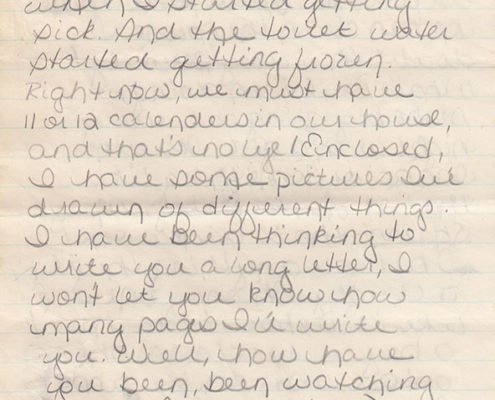 when I started getting
sick. And the toilet water
started getting frozen.
Right now, we must have
11 or 12 calenders in our house,
and that's no lye! Enclosed,
I have some pictures I've
drawn of different things.
I have been thinking to
write you a long letter, I
won't let you know how
many pages I'll write
you. Well, how have
you been, been watching